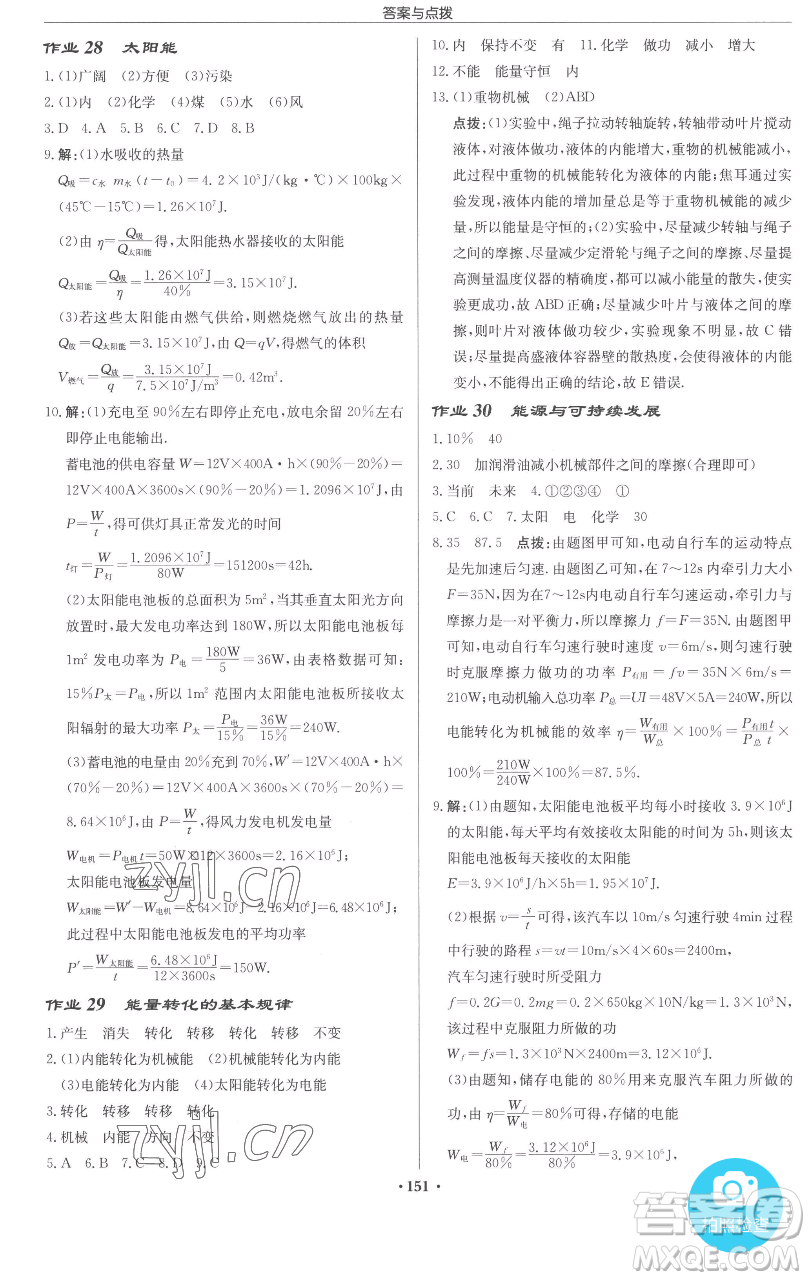 答案与点拨
作业 28 太阳能
1. (1)广阔 (2)方便 (3)污染
2. (1)内 (2)化学 (4)煤 (5)水 (6)风
3. D 4. A 5. B 6. C 7. D 8. B
9. 解:(1)水吸收的热量
Q吸=c水 m水(t-t₀)=4.2×10³J/(kg·℃)×100kg×
(45℃-15℃)=1.26×10⁷J.
(2)由 η=Q吸/Q太阳能得,太阳能热水器接收的太阳能
Q太阳能=Q吸/η=1.26×10⁷J/40%=3.15×10⁷J.
(3)若这些太阳能由燃气供给,则燃烧燃气放出的热量
Q放=Q太阳能=3.15×10⁷J,由 Q=qV,得燃气的体积
V燃气=Q放/q=3.15×10⁷J/7.5×10⁷J/m³=0.42m³.
10. 解:(1)充电至 90%左右即停止充电,放电余留 20%左右
即停止电能输出.
蓄电池的供电容量 W=12V×400A·h×(90%-20%)=
12V×400A×3600s×(90%-20%)=1.2096×10⁷J,由
P=W/t,得可供灯具正常发光的时间
t灯=W/P灯=1.2096×10⁷J/80W=151200s=42h.
(2)太阳能电池板的总面积为 5m²,当其垂直太阳光方向
放置时,最大发电功率达到 180W,所以太阳能电池板每
1m² 发电功率为 P电=180W/5=36W,由表格数据可知:
15%P太=P电,所以 1m² 范围内太阳能电池板所接收太
阳辐射的最大功率 P太=P电/15%=36W/15%=240W.
(3)蓄电池的电量由 20%充到 70%,W′=12V×400A·h
×(70%-20%)=12V×400A×3600s×(70%-20%)=
8.64×10⁶J,由 P=W/t,得风力发电机发电量
W电机=P电机t=50W×12×3600s=2.16×10⁶J;
太阳能电池板发电量
W太阳能=W′-W电机=8.64×10⁶J-2.16×10⁶J=6.48×10⁶J;
此过程中太阳能电池板发电的平均功率
P′=W太阳能/t=6.48×10⁶J/12×3600s=150W.
作业 29 能量转化的基本规律
1. 产生 消失 转化 转移 转化 转移 不变
2. (1)内能转化为机械能 (2)机械能转化为内能
(3)电能转化为内能 (4)太阳能转化为电能
3. 转化 转移 转移 转化
4. 机械 内能 方向 不变
5. A 6. B 7. C 8. D 9. C
10. 内 保持不变 有 11. 化学 做功 减小 增大
12. 不能 能量守恒 内
13. (1)重物机械 (2)ABD
点拨:(1)实验中,绳子拉动转轴旋转,转轴带动叶片搅动
液体,对液体做功,液体的内能增大,重物的机械能减小,
此过程中重物的机械能转化为液体的内能;焦耳通过实
验发现,液体内能的增加量总是等于重物机械能的减少
量,所以能量是守恒的;(2)实验中,尽量减少转轴与绳子
之间的摩擦、尽量减少定滑轮与绳子之间的摩擦、尽量提
高测量温度仪器的精确度,都可以减小能量的散失,使实
验更成功,故 ABD 正确;尽量减少叶片与液体之间的摩
擦,则叶片对液体做功较少,实验现象不明显,故 C 错
误;尽量提高盛液体容器壁的散热度,会使得液体的内能
变小,不能得出正确的结论,故 E 错误.
作业 30 能源与可持续发展
1. 10% 40
2. 30 加润滑油减小机械部件之间的摩擦(合理即可)
3. 当前 未来 4. ①②③④ ①
5. C 6. C 7. 太阳 电 化学 30
8. 35 87.5 点拨:由题图甲可知,电动自行车的运动特点
是先加速后匀速.由题图乙可知,在 7~12s 内牵引力大小
F=35N,因为在 7~12s 内电动自行车匀速运动,牵引力与
摩擦力是一对平衡力,所以摩擦力 f=F=35N.由题图甲
可知,电动自行车匀速行驶时速度 v=6m/s,则匀速行驶
时克服摩擦力做功的功率 P有用=fv=35N×6m/s=
210W;电动机输入总功率 P总=UI=48V×5A=240W,所以
电能转化为机械能的效率 η=W有用/W总×100%=P有用t/P总t×
100%=210W/240W×100%=87.5%.
9. 解:(1)由题知,太阳能电池板平均每小时接收 3.9×10⁶J
的太阳能,每天平均有效接收太阳能的时间为 5h,则该太
阳能电池板每天接收的太阳能
E=3.9×10⁶J/h×5h=1.95×10⁷J.
(2)根据 v=s/t可得,该汽车以 10m/s 匀速行驶 4min 过程
中行驶的路程 s=vt=10m/s×4×60s=2400m,
汽车匀速行驶时所受阻力
f=0.2G=0.2mg=0.2×650kg×10N/kg=1.3×10³N,
该过程中克服阻力所做的功
Wf=fs=1.3×10³N×2400m=3.12×10⁶J.
(3)由题知,储存电能的 80%用来克服汽车阻力所做的
功,由 η=Wf/W电=80%可得,存储的电能
W电=Wf/80%=3.12×10⁶J/80%=3.9×10⁶J.
· 151 ·
zyjl.cn
zyjl.cn
拍照检查
答案圈
MXQE.COM